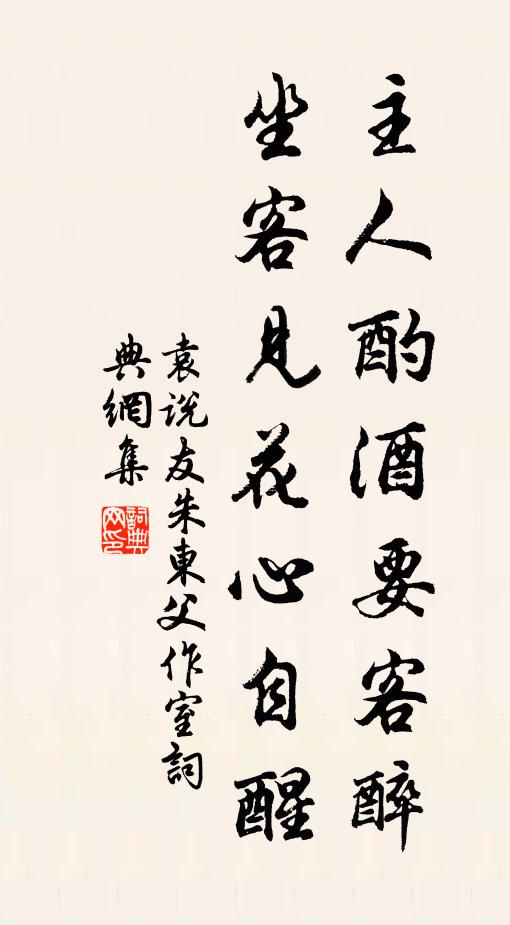 主人酌酒要客醉
坐客見花心自醒
袁说友朱東父作室詞
典網集
詞典網印